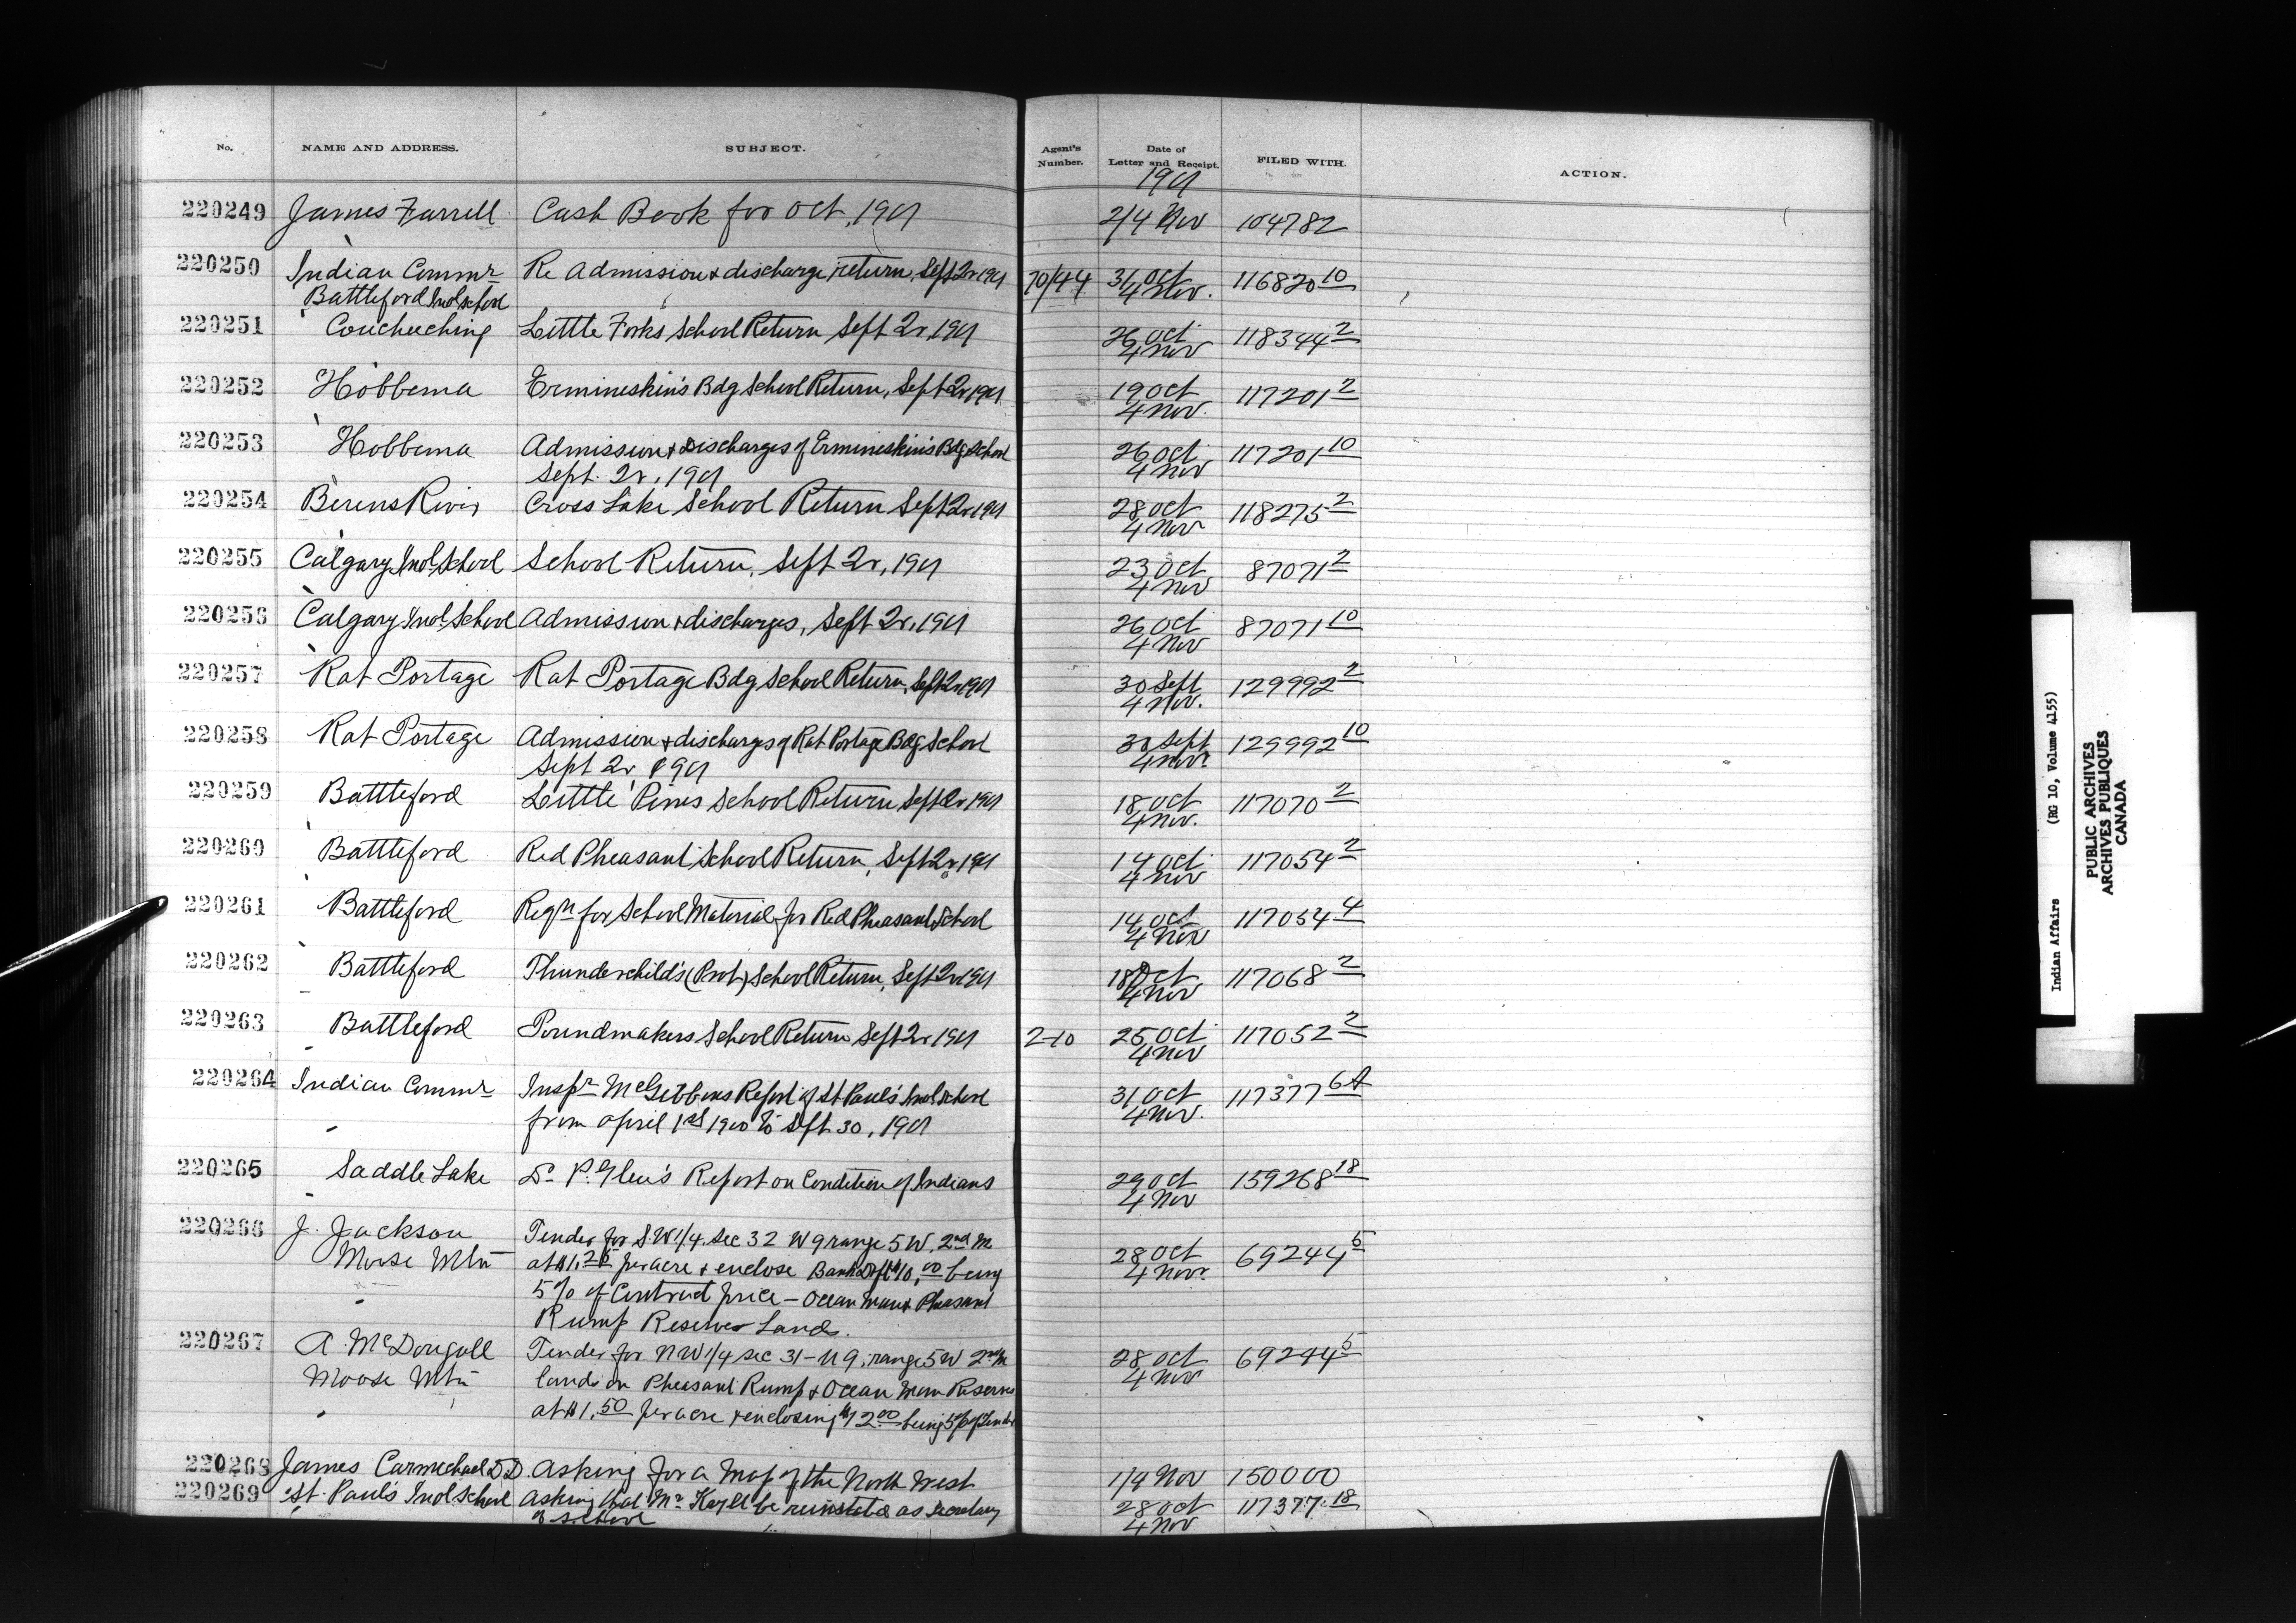 No. NAME AND ADDRESS. SUBJECT. Agent's Number. Date of Letter and Receipt. FILED WITH. ACTION.
1901
220249 James Farrell Cash Book for Oct, 1901 2/4 Nov 104782
220250 Indian Commr Re Admission & discharge return, Sept 2r 1901 70/44 31 Oct 116820 10
Battleford Indl School 4 Nov.
220251 Couchuching Little Forks School Return Sept 2r, 1901 26 Oct 118344 2
4 Nov
220252 Hobbema Ermineskin's Bdg School Return, Sept 2r 1901 19 Oct 117201 2
4 Nov.
220253 Hobbema Admission & Discharges of Ermineskin's Bdg School 26 Oct 117201 10
Sept. 2r, 1901 4 Nov
220254 Berens River Cross Lake School Return Sept 2r 1901 28 Oct 118275 2
4 Nov
220255 Calgary Indl School School Return, Sept 2r, 1901 23 Oct 87071 2
4 Nov
220256 Calgary Indl School Admission & discharges, Sept 2r, 1901 26 Oct 87071 10
4 Nov
220257 Rat Portage Rat Portage Bdg School Return, Sept 2r 1901 30 Sept 129992 2
4 Nov.
220258 Rat Portage Admission & discharges of Rat Portage Bdg School 30 Sept 129992 10
Sept 2r, 1901 4 Nov.
220259 Battleford Little Pines School Return Sept 2r 1901 18 Oct 117070 2
4 Nov.
220260 Battleford Red Pheasant School Return, Sept 2r, 1901 14 Oct 117054 2
4 Nov
220261 Battleford Reqn for School Material for Red Pheasant School 14 Oct 117054 4
4 Nov
220262 Battleford Thunderchild's (Prot) School Return, Sept 2r 1901 18 Oct 117068 2
4 Nov
220263 Battleford Poundmakers School Return Sept 2r 1901 2-10 25 Oct 117052 2
4 Nov
220264 Indian Commr Inspr McGibbons Report of St Paul's Indl School 31 Oct 117377 6A
from April 1st 1900 to Sept 30, 1901 4 Nov.
220265 Saddle Lake Dr P. Glen's Report on Condition of Indians 29 Oct 159268 18
4 Nov
220266 J. Jackson Tender for S.W 1/4. Sec 32 W 9 range 5 W. 2nd M 28 Oct 69244 5
Moose Mtn at $1.25 per acre & enclose Bank Dft $10.00 being 4 Nov.
5% of Contract price - Ocean Man & Pheasant
Rump Reserves Lands.
220267 A. McDougall Tender for NW 1/4 sec 31 - 9, range 5 W 2nd M 28 Oct 69244 5
Moose Mtn lands on Pheasant Rump & Ocean Man Reserves 4 Nov
at $1.50 per acre & enclosing $12.00 being 5% of Tender
220268 James Carmichael D.D. Asking for a Map of the North West 1/4 Nov 150000
220269 St. Paul's Indl School Asking that Mr be reinstated as Secretary 28 Oct 117377 18
of School 4 Nov
Indian Affairs (RG 10, Volume 4155)
PUBLIC ARCHIVES
ARCHIVES PUBLIQUES
CANADA